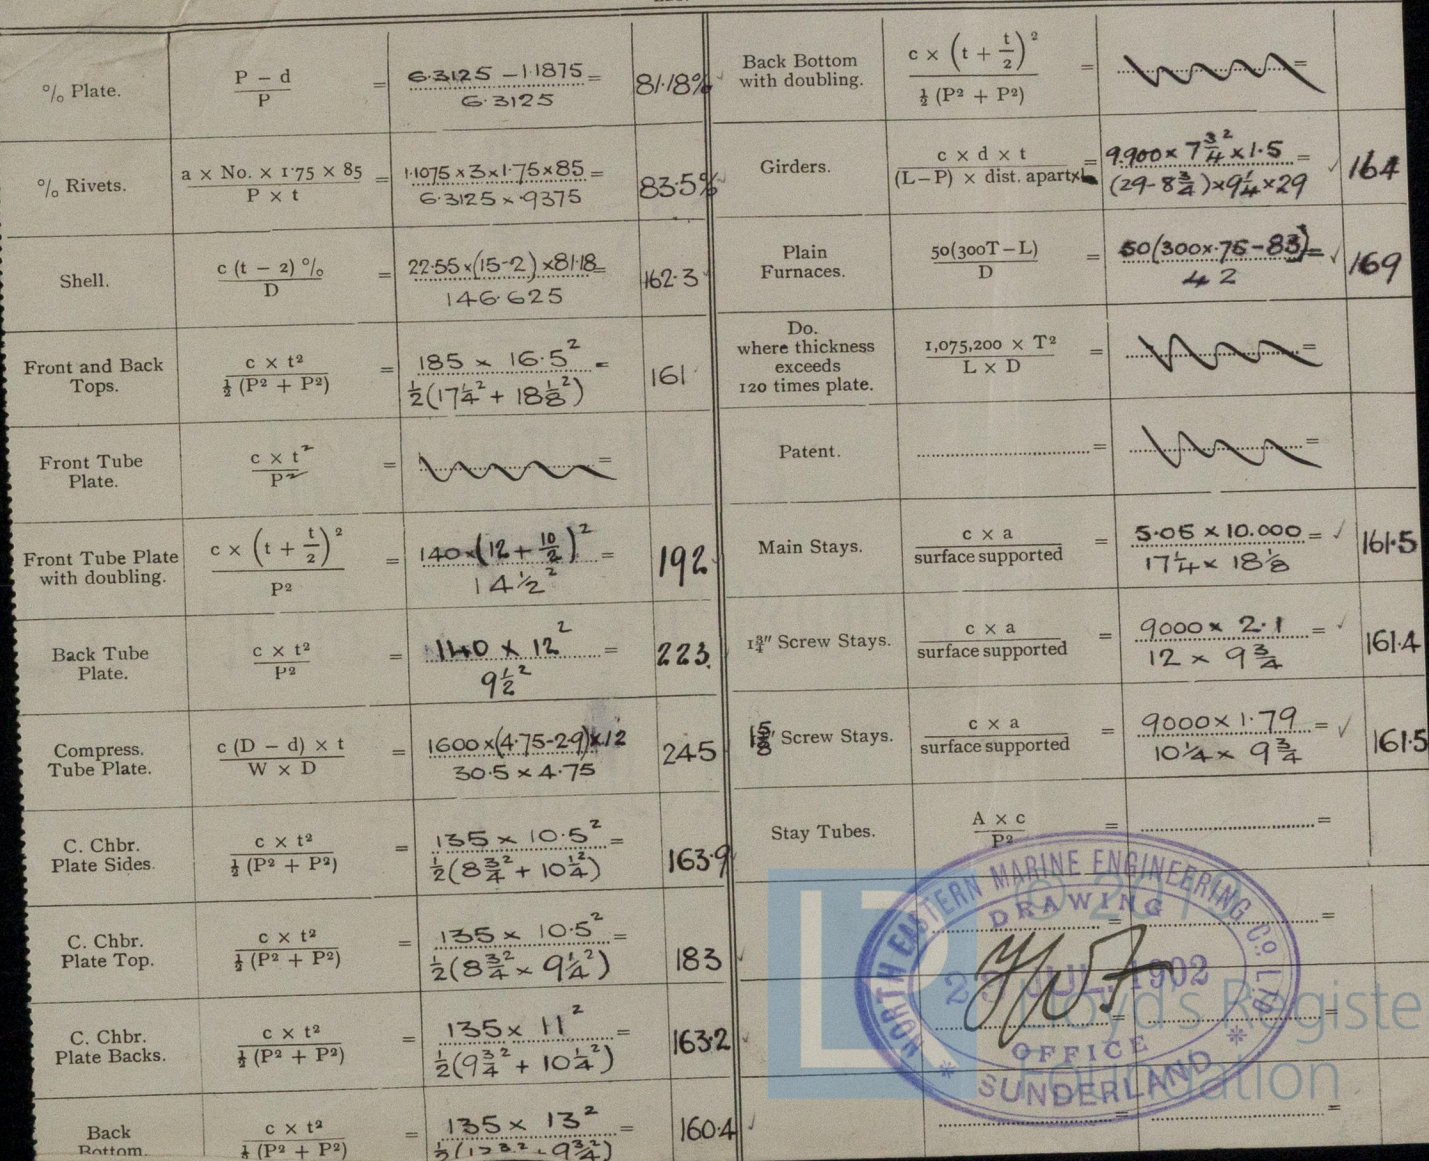 % Plate.
P – d
P
=
6.3125 – 1.1875 =
6.3125
81.18%
% Rivets.
a × No. × 1·75 × 85
P × t
=
1.1075 × 3 × 1.75 × 85 =
6.3125 × .9375
83.5%
Shell.
c (t – 2) %
D
=
22.55 × (15-2) × 81.18 =
146.625
162.3
Front and Back
Tops.
c × t²
½ (P² + P²)
=
185 × 16.5² =
½(17¼² + 18⅛²)
161
Front Tube
Plate.
c × t²
P²
=
=
Front Tube Plate
with doubling.
c × (t + t/2)²
P²
=
140 × (12 + 10/2)² =
14½²
192
Back Tube
Plate.
c × t²
P²
=
140 × 12² =
9½²
223.
Compress.
Tube Plate.
c (D – d) × t
W × D
=
1600 × (4.75-2.9) × 12
30.5 × 4.75
245
C. Chbr.
Plate Sides.
c × t²
½ (P² + P²)
=
135 × 10.5² =
½(8¾² + 10¼²)
163.9
C. Chbr.
Plate Top.
c × t²
½ (P² + P²)
=
135 × 10.5² =
½(8¾² × 9¼²)
183
C. Chbr.
Plate Backs.
c × t²
½ (P² + P²)
=
135 × 11² =
½(9¾² + 10¼²)
163.2
Back
Bottom.
c × t²
½ (P² + P²)
=
135 × 13² =
160.4
Back Bottom
with doubling.
c × (t + t/2)²
½ (P² + P²)
=
=
Girders.
c × d × t
(L–P) × dist. apart × L
=
9.900 × 7¾² × 1.5 =
(29-8¾) × 9¼ × 29
164
Plain
Furnaces.
50(300T–L)
D
=
50(300×.75-83) =
42
169
Do.
where thickness
exceeds
120 times plate.
1,075,200 × T²
L × D
=
=
Patent.
=
=
Main Stays.
c × a
surface supported
=
5.05 × 10.000 =
17¼ × 18⅛
161.5
1¾" Screw Stays.
c × a
surface supported
=
9000 × 2.1 =
12 × 9¾
161.4
1⅝" Screw Stays.
c × a
surface supported
=
9000 × 1.79 =
10¼ × 9¾
161.5
Stay Tubes.
A × c
P²
=
=
NORTH EASTERN MARINE ENGINEERING Co. LTD.
DRAWING
JUL. 1902
OFFICE
* SUNDERLAND *
LR
Lloyd's Registe
Foundation